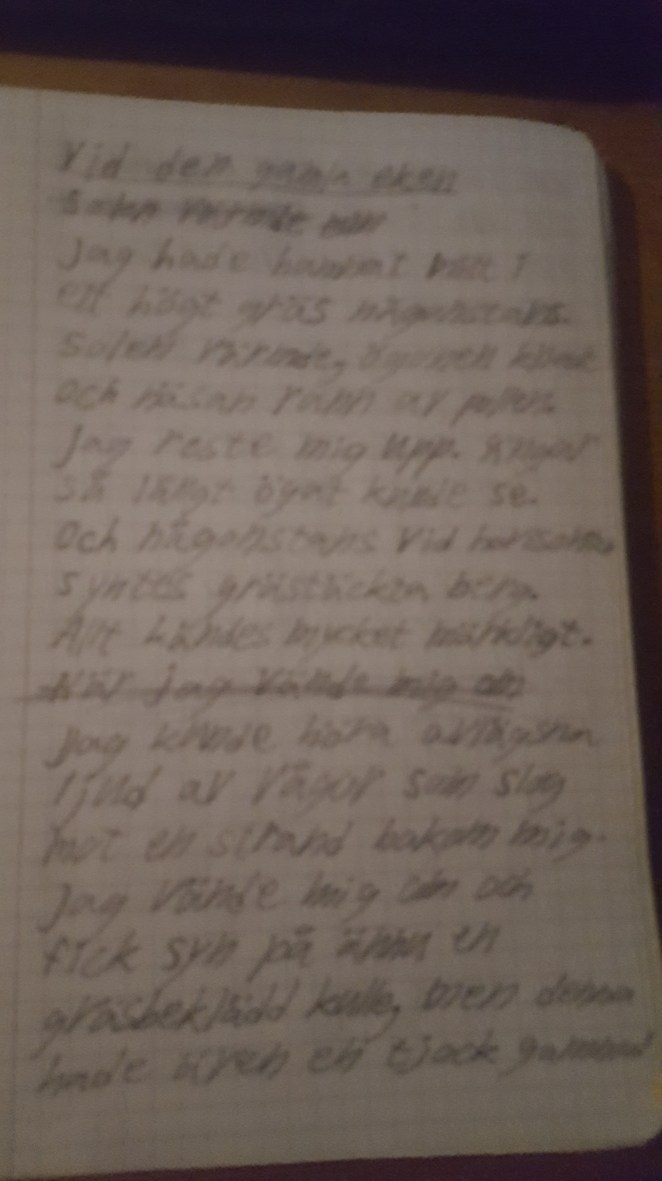 Vid den gamla eken
Solen värmde min
Jag hade hamnat rätt i
ett högt gräs någonstans.
Solen värmde, ögonen
Och näsan rann av pollen.
Jag reste mig upp. Ängar
så långt ögat kunde se.
Och någonstans vid horisonten
syntes grästäckta berg.
Allt kändes mycket märkligt.
När jag vände mig om
Jag kunde höra avlägsna
ljud av vågor som slog
mot en strand bakom mig.
Jag vände mig om och
fick syn på ännu en
gräsbeklädd kulle, men denna
hade även en tjock gammal